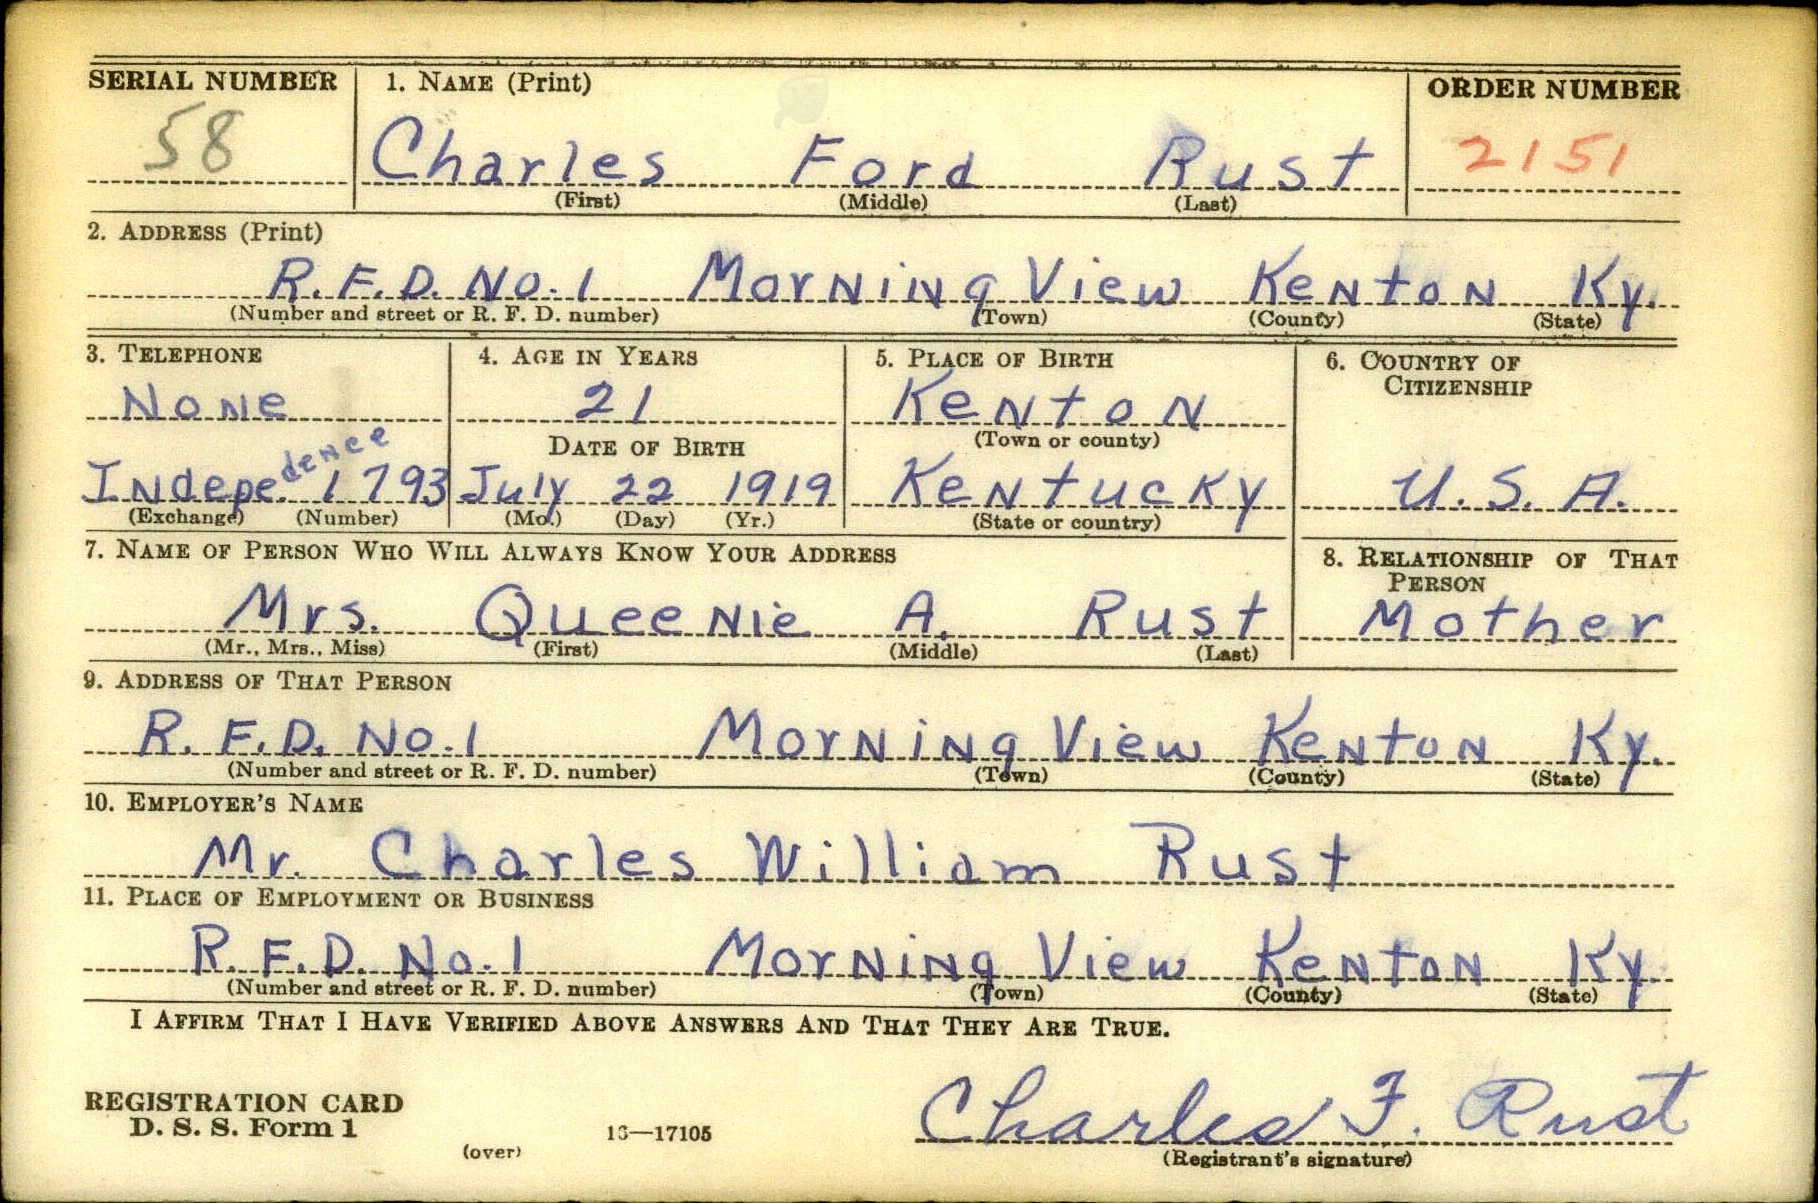 SERIAL NUMBER 1. NAME (Print) ORDER NUMBER
58 Charles Ford Rust 2151
(First) (Middle) (Last)
2. ADDRESS (Print)
R.F.D. No. 1 Morning View Kenton Ky.
(Number and street or R. F. D. number) (Town) (County) (State)
3. TELEPHONE 4. AGE IN YEARS 5. PLACE OF BIRTH 6. COUNTRY OF CITIZENSHIP
None 21 Kenton
DATE OF BIRTH (Town or county)
Indepe dence 1793 July 22 1919 Kentucky U.S.A.
(Exchange) (Number) (Mo.) (Day) (Yr.) (State or country)
7. NAME OF PERSON WHO WILL ALWAYS KNOW YOUR ADDRESS 8. RELATIONSHIP OF THAT PERSON
Mrs. Queenie A. Rust Mother
(Mr., Mrs., Miss) (First) (Middle) (Last)
9. ADDRESS OF THAT PERSON
R.F.D. No. 1 Morning View Kenton Ky.
(Number and street or R. F. D. number) (Town) (County) (State)
10. EMPLOYER'S NAME
Mr. Charles William Rust
11. PLACE OF EMPLOYMENT OR BUSINESS
R.F.D. No. 1 Morning View Kenton Ky.
(Number and street or R. F. D. number) (Town) (County) (State)
I AFFIRM THAT I HAVE VERIFIED ABOVE ANSWERS AND THAT THEY ARE TRUE.
REGISTRATION CARD
D. S. S. Form 1
(over) 16—17105
Charles F. Rust
(Registrant's signature)